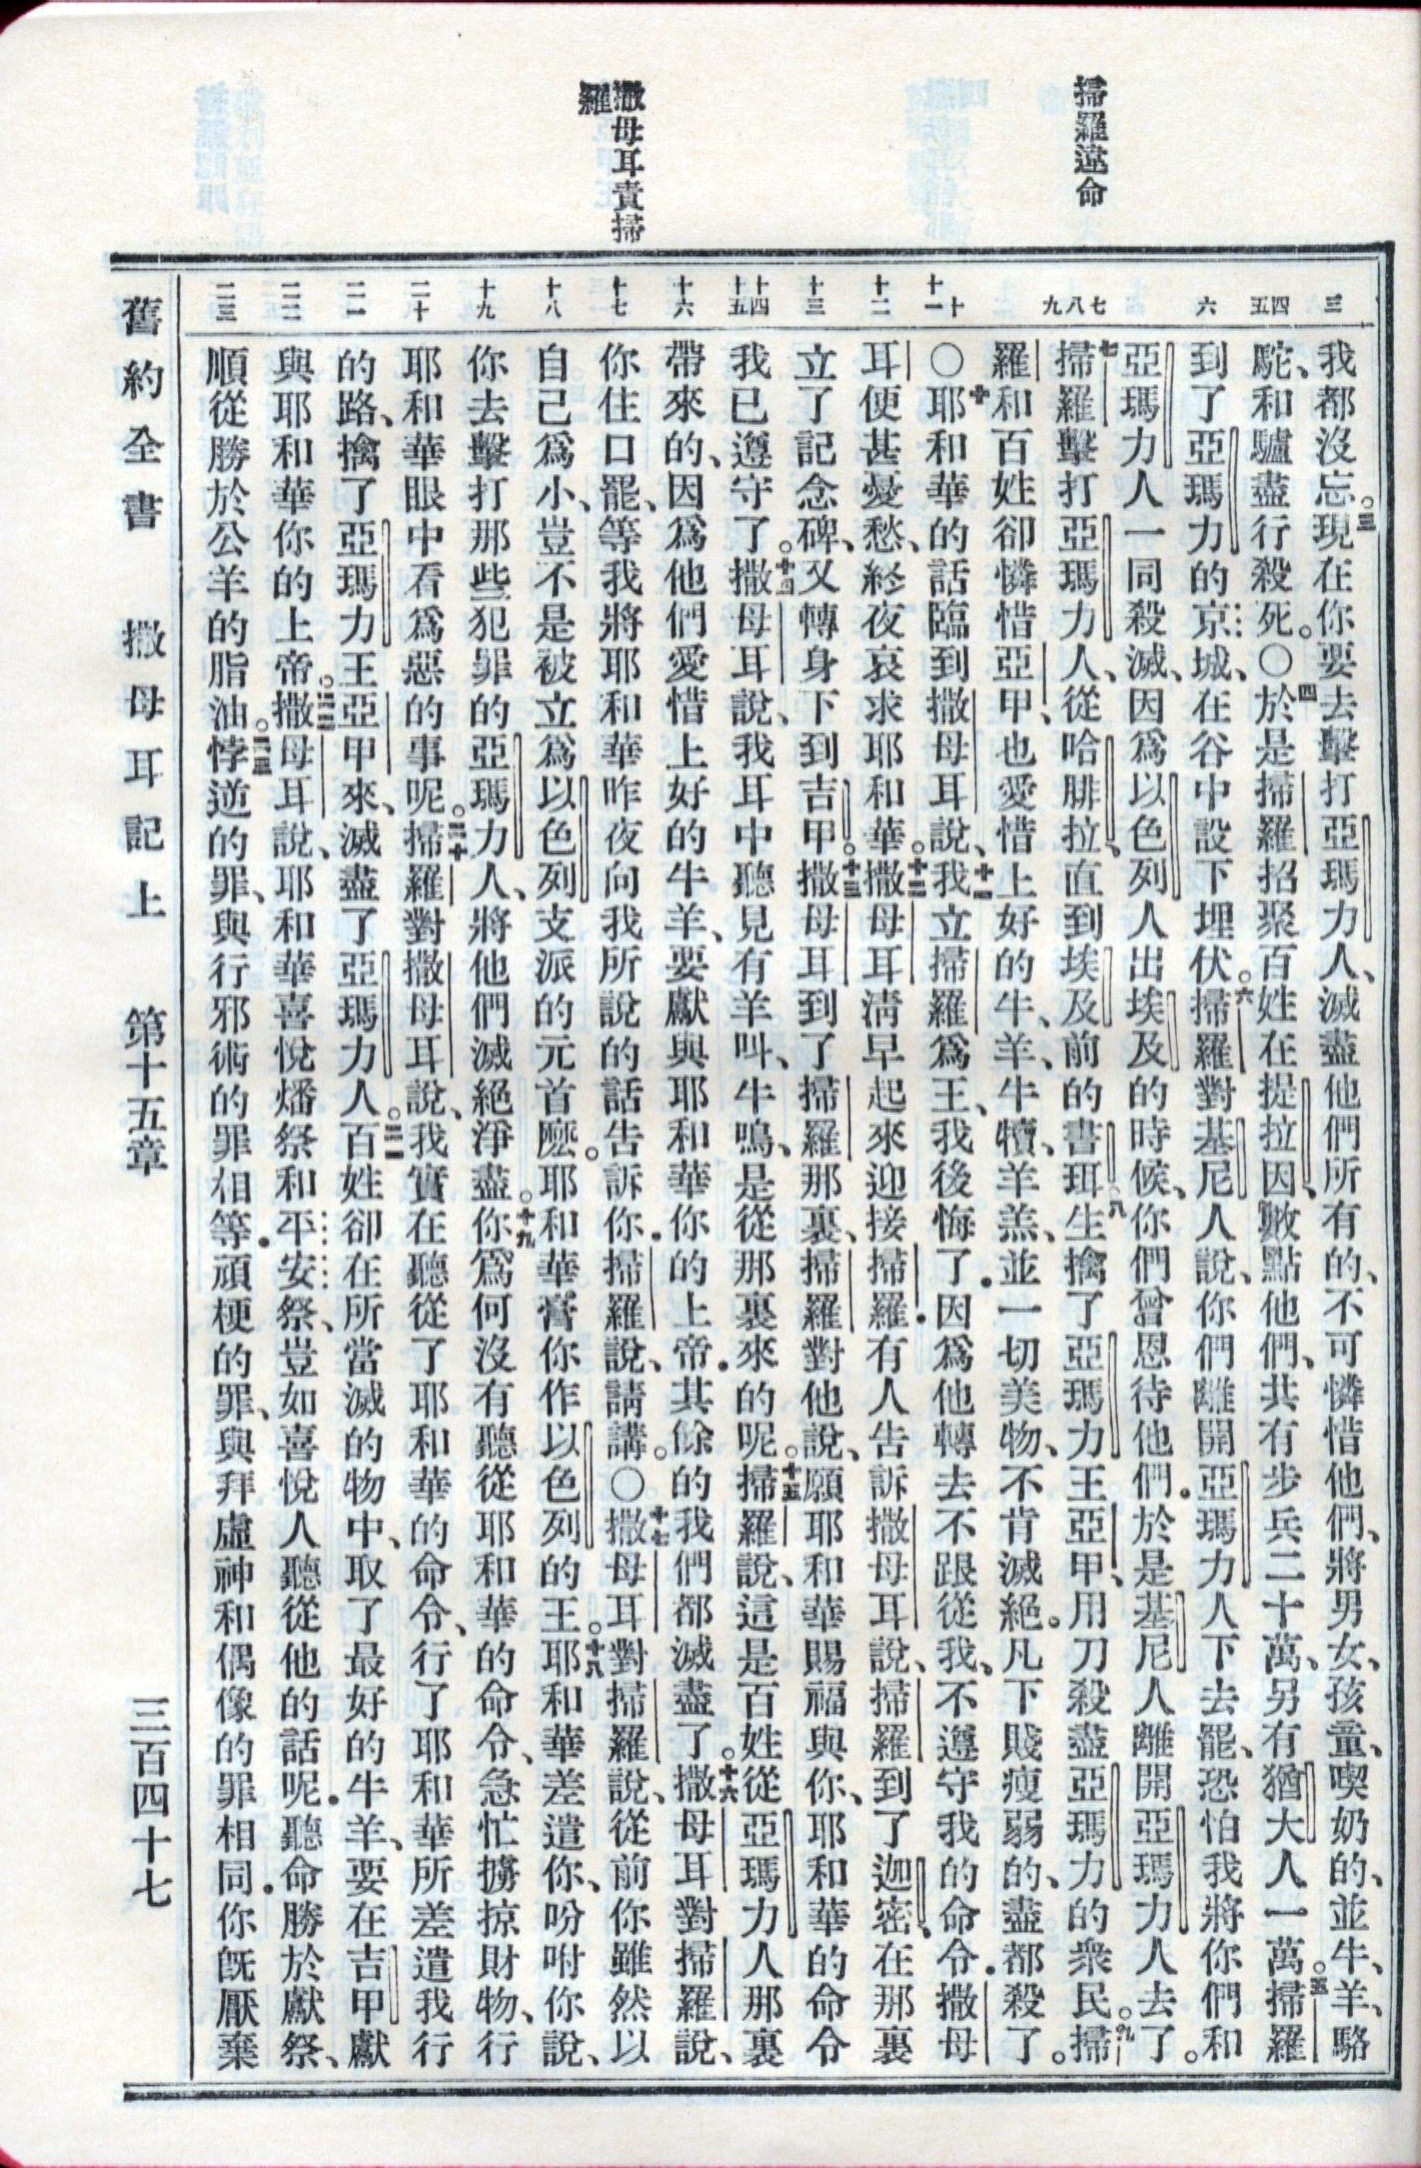 掃羅違命
撒母耳責掃
羅
三
四
五
六
七
八
九
十
十一
十二
十三
十四
十五
十六
十七
十八
十九
二十
二一
二二
二三
我都沒忘。三現在你要去擊打亞瑪力人、滅盡他們所有的、不可憐惜他們、將男女、孩童、喫奶的、並牛、羊、駱
駝、和驢盡行殺死。〇四於是掃羅招聚百姓在提拉因、數點他們、共有步兵二十萬、另有猶大人一萬。五掃羅
到了亞瑪力的京城、在谷中設下埋伏。六掃羅對基尼人說、你們離開亞瑪力人下去罷、恐怕我將你們和
亞瑪力人一同殺滅、因爲以色列人出埃及的時候、你們曾恩待他們．於是基尼人離開亞瑪力人去了。
七掃羅擊打亞瑪力人、從哈腓拉、直到埃及前的書珥。八生擒了亞瑪力王亞甲、用刀殺盡亞瑪力的衆民。九掃
羅和百姓卻憐惜亞甲、也愛惜上好的牛、羊、牛犢、羊羔、並一切美物、不肯滅絕。凡下賤瘦弱的、盡都殺了。
〇十耶和華的話臨到撒母耳說、十一我立掃羅爲王、我後悔了．因爲他轉去不跟從我、不遵守我的命令．撒母
耳便甚憂愁、終夜哀求耶和華。十二撒母耳淸早起來迎接掃羅．有人告訴撒母耳說、掃羅到了迦密、在那裏
立了記念碑、又轉身下到吉甲。十三撒母耳到了掃羅那裏、掃羅對他說、願耶和華賜福與你、耶和華的命令
我已遵守了。十四撒母耳說、我耳中聽見有羊叫、牛鳴、是從那裏來的呢。十五掃羅說、這是百姓從亞瑪力人那裏
帶來的、因爲他們愛惜上好的牛、羊、要獻與耶和華你的上帝．其餘的我們都滅盡了。十六撒母耳對掃羅說、
你住口罷、等我將耶和華昨夜向我所說的話告訴你．掃羅說、請講。〇十七撒母耳對掃羅說、從前你雖然以
自己爲小、豈不是被立爲以色列支派的元首麽。耶和華膏你作以色列的王。十八耶和華差遣你、吩咐你說、
你去擊打那些犯罪的亞瑪力人、將他們滅絕淨盡。十九你爲何沒有聽從耶和華的命令、急忙擄掠財物、行
耶和華眼中看爲惡的事呢。二十掃羅對撒母耳說、我實在聽從了耶和華的命令、行了耶和華所差遣我行
的路、擒了亞瑪力王亞甲來、滅盡了亞瑪力人。二一百姓卻在所當滅的物中、取了最好的牛羊、要在吉甲獻
與耶和華你的上帝。二二撒母耳說、耶和華喜悅燔祭和平安祭、豈如喜悅人聽從他的話呢．聽命勝於獻祭、
順從勝於公羊的脂油。二三悖逆的罪、與行邪術的罪相等．頑梗的罪、與拜虛神和偶像的罪相同．你旣厭棄
舊約全書　撒母耳記上　第十五章　三百四十七